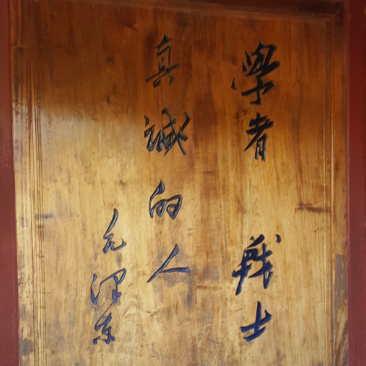 學者 戰士
真誠的人
毛澤東